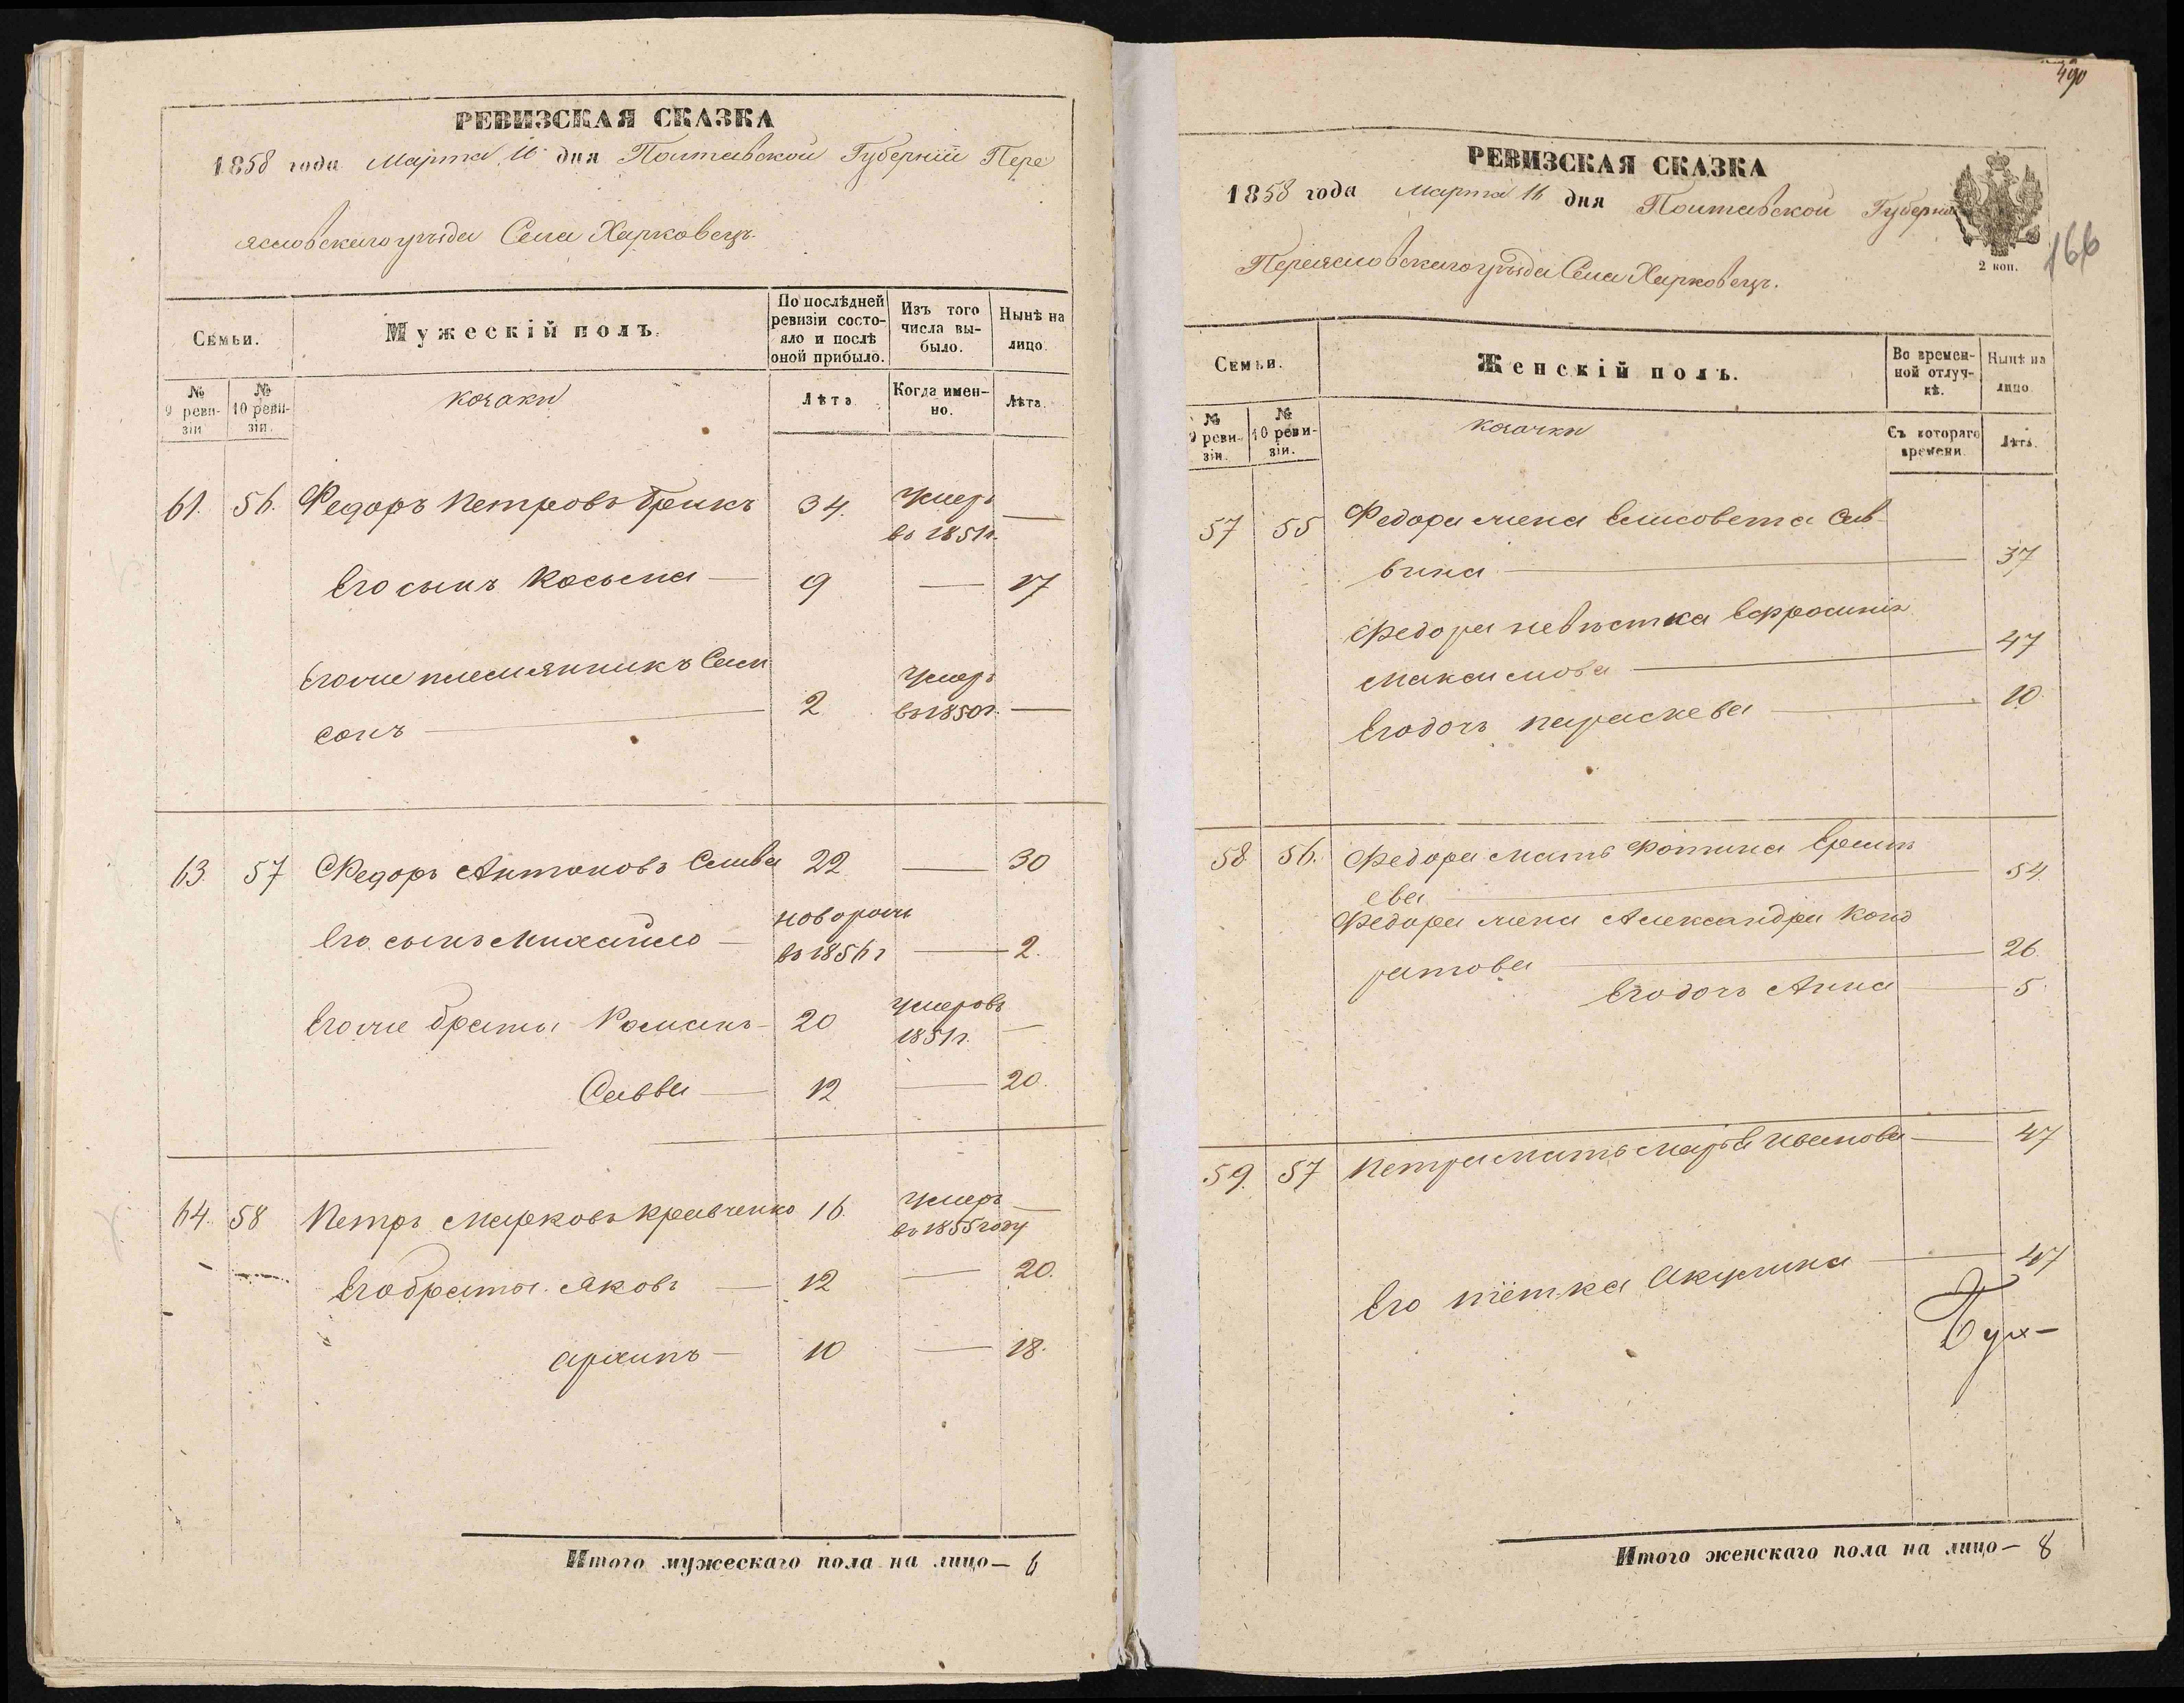 РЕВИЗСКАЯ СКАЗКА
1858 года Марта 16 дня Полтавской Губерніи Пере
яславскаго уѣзда Села Харковецъ.
Семьи.
Мужескій полъ.
По послѣдней ревизіи состояло и послѣ оной прибыло.
Изъ того числа выбыло.
Нынѣ на лицо.
№ 9 ревизіи
№ 10 ревизіи.
козаки
Лѣта
Когда именно.
Лѣта.
61. 56. Федоръ Петровъ 34. умеръ —
въ 1851г.
Его сынъ Косьма — 9 — 17
Егоже племянникъ Сам
сонъ — 2 умеръ въ 1850г. —
63. 57 Федоръ Антоновъ Слива 22 — 30
Его сынъ Михайло — новорож
въ 1856г — 2.
Егоже братья Романъ — 20 умеръ въ
1851г. —
Савва — 12 — 20.
64. 58 Петръ Марковъ Кравченко 16. умеръ —
въ 1855 году
Его братья Яковъ — 12 — 20.
Архипъ — 10 — 18.
Итого мужескаго пола на лицо — 6
490
РЕВИЗСКАЯ СКАЗКА
1858 года Марта 16 дня Полтавской Губерніи
2 коп.
166
Переяславскаго уѣзда Села Харковецъ.
Семьи.
Женскій полъ.
Во временной отлучкѣ.
Нынѣ на лицо
№ 9 ревизіи.
№ 10 ревизіи.
козачки
Съ котораго времени.
Лѣта.
57 55 Федора жена Елисовета Сав-
вина — 37
Федора невѣстка Ефросинія
Максимова — 47
Его дочь Параскева — 10.
58 56. Федора мать Фотина Еремѣ
ева — 54.
Федора жена Александра Конд
ратова — 26.
Его дочь Анна — 5.
59. 57 Петра мать Марья Иванова — 47
Его тётка Акулина — 47
Итого женскаго пола на лицо — 8